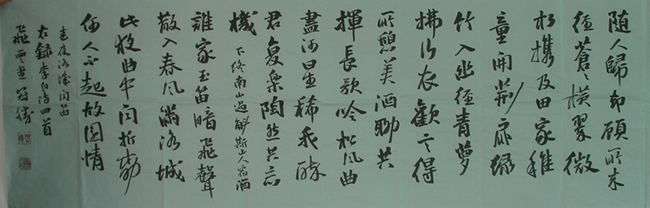 随人歸却顧所来
徑蒼々横翠微
相攜及田家稚
童開荆扉绿
竹入幽徑青蘿
拂行衣歡言得
所憩美酒聊共
揮長歌吟松風曲
盡河星稀我醉
君復樂陶然共忘
機 下终南山過斛斯山人宿酒
誰家玉笛暗飛聲
散入春風满洛城
此夜曲中闻折柳
何人不起故園情
春夜洛城闻笛
右録李白诗四首